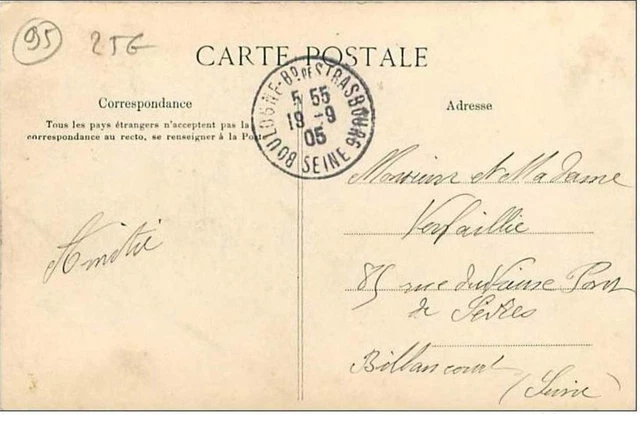 95
25€
CARTE POSTALE
BOULOGNE-Bd DE STRASBOURG
5 55
19 -9
05
SEINE
Correspondance
Adresse
Tous les pays étrangers n'acceptent pas la
correspondance au recto, se renseigner à la Poste
Monsieur et Madame
Verfaillie
Amitié
85 rue du Vieux Pont
de Sèvres
Billancourt
(Seine)